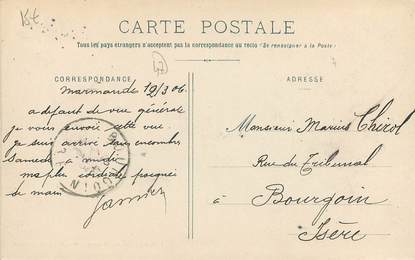 CARTE POSTALE
Tous les pays étrangers n'acceptent pas la correspondance au recto (Se renseigner à la Poste)
CORRESPONDANCE
Marmande 12/3 06
a defaut de vue générale
je vous envoie cette vue
je suis arrivé sans encombre
Samedi à midi
ms plus cordiale poignée
de main
47
BOURGOIN
ADRESSE
Monsieur Marius Chirol
Rue du Tribunal
à Bourgoin
Isère